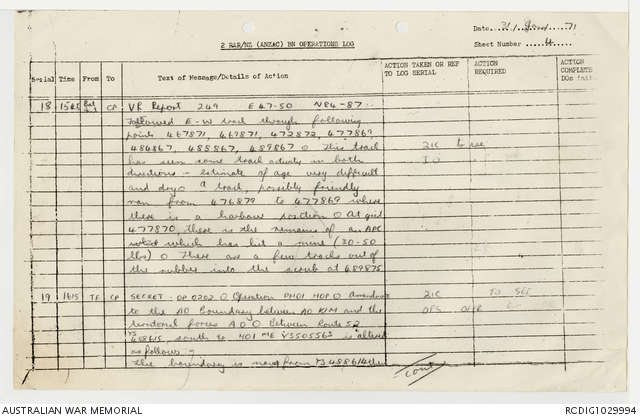 Date 31 Jan 71
2 RAR/NZ (ANZAC) BN OPERATIONS LOG
Sheet Number 4
Serial Time From To Text of Message/Details of Action ACTION TAKEN OR REF TO LOG SERIAL ACTION REQUIRED ACTION COMPLETE
18 CP VR Report 249 E 47-50 N84-87
Followed E-W trail through following
points 467871, 469871, 472872, 477869
484867, 485867, 489867 O This trail
has seen some track activity in both 2IC to see
directions - estimate of age very difficult IO
and dry O a track, possibly friendly
ran from 476879 to 477869 where
there is a harbour position O At grid
477870, there is the remains of an APC
which has hit a mine (20-50
lbs) O There are a few tracks out of
the rubber into the scrub at 489875
19 1615 TF CP SECRET - OP 0202 O Operation PHOI HOP O amendment 2IC TO SEE
to the AO Boundary between AO KIM and the OPS OFFR
territorial forces AO O Between Route 52
YS 488615 south to 401 ME YS505563 is altered
as follows -
the boundary is moved from YS 488614
cont
AUSTRALIAN WAR MEMORIAL
RCDIG1029994